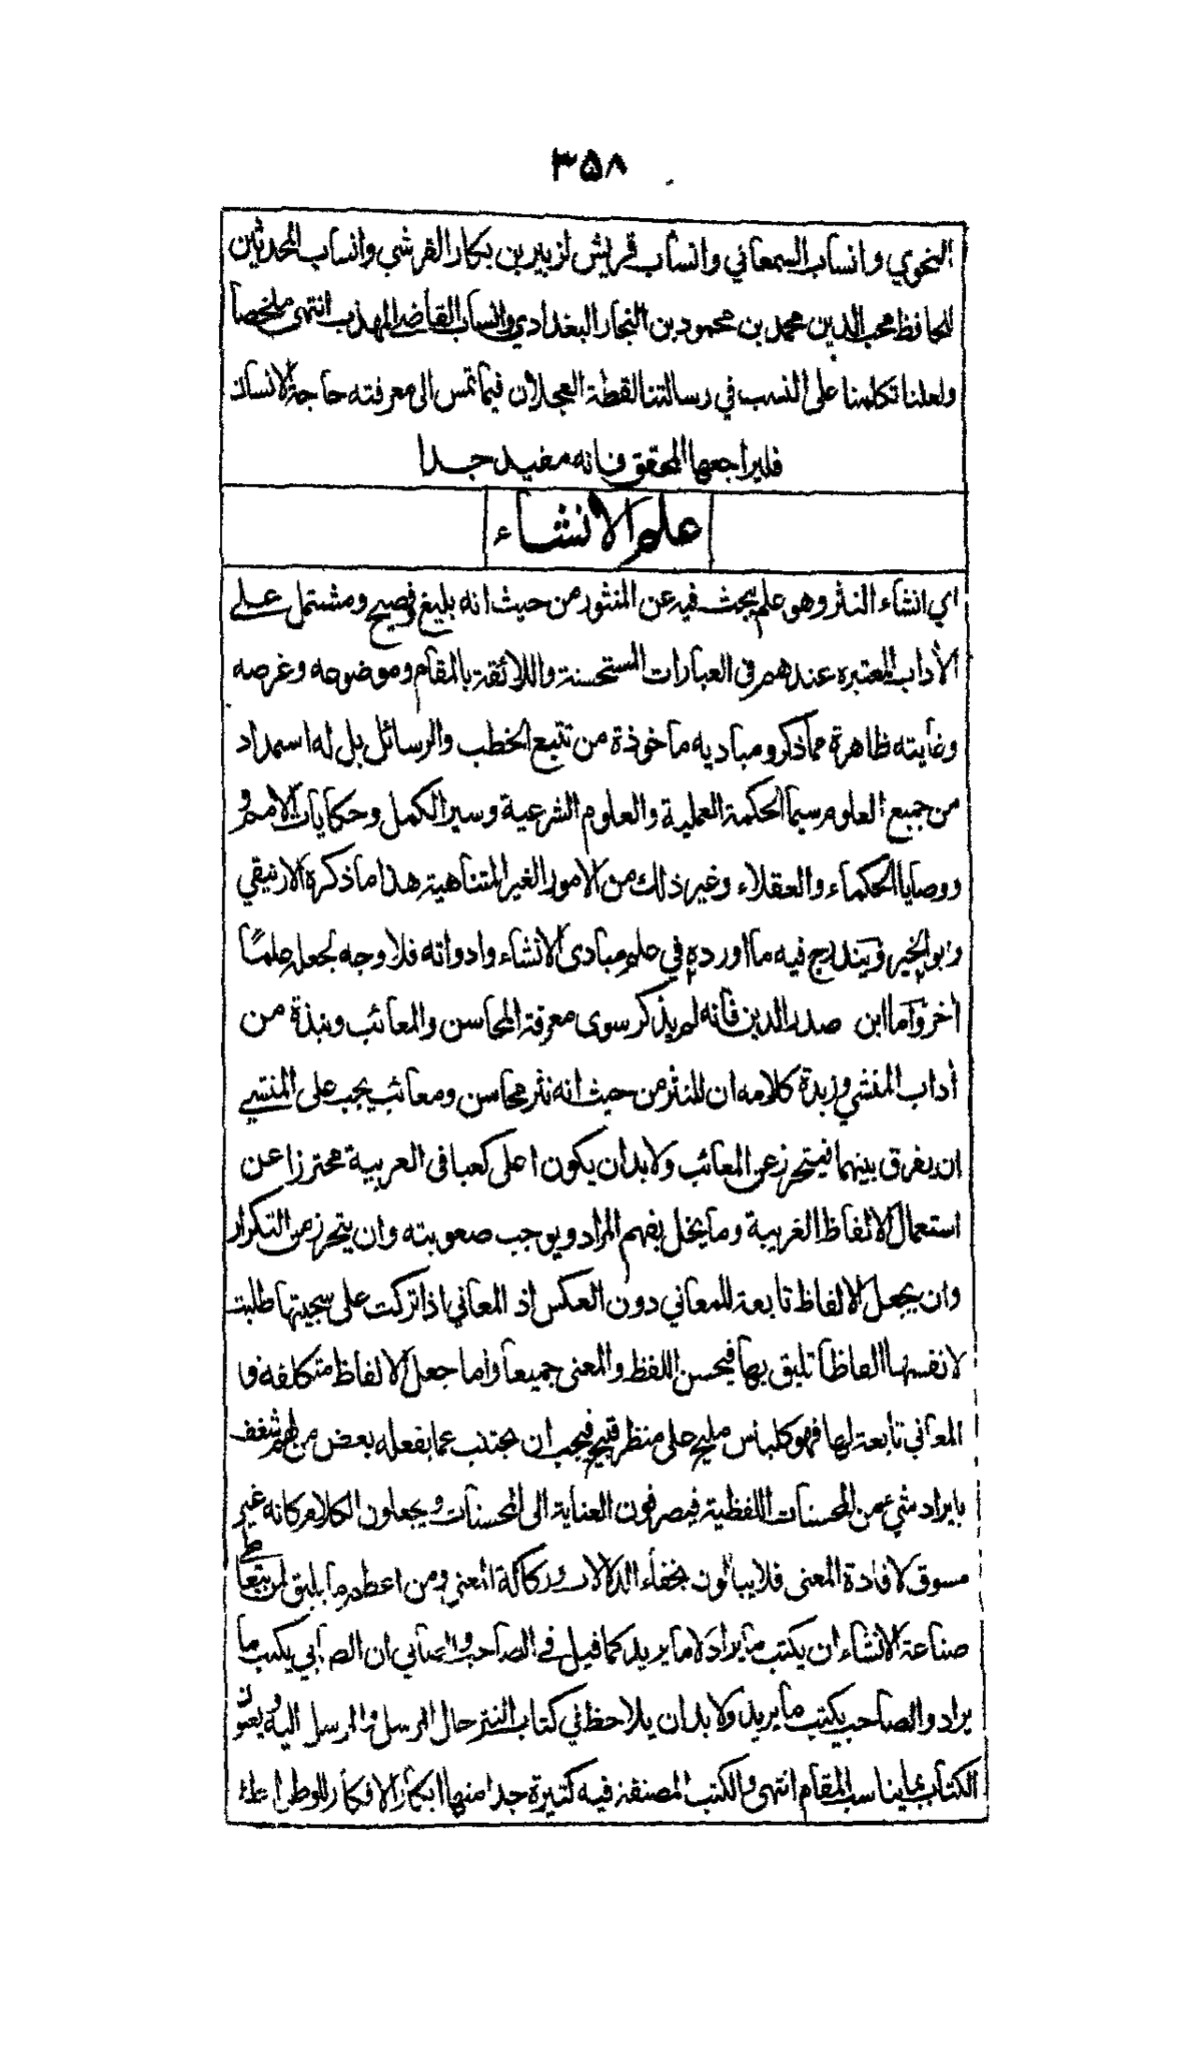 ٣٥٨
النحوي وانساب السمعاني وانساب قريش لزبير بن بكار القرشي وانساب المحدثين
للحافظ محب الدين محمد بن محمود بن النجار البغدادي وانساب القاضي المهذب انتهى ملخصا
ولعلنا تكلمنا على النسب في رسالتنا لقطة العجلان فيما تمس الى معرفته حاجة الانسان
فليراجعها المحقق فانه مفيد جدا
علم الانشاء
اي انشاء النثر وهو علم يبحث فيه عن المنثور من حيث انه بليغ وفصيح ومشتمل على
الأداب المعتبره عندهم في العبارات المستحسنة واللائقة بالمقام وموضوعه وغرضه
وغايته ظاهرة مما ذكر ومباديه ماخوذة من تتبع الخطب والرسائل بل له استمداد
من جميع العلوم سيما الحكمة العملية والعلوم الشرعية وسير الكمل وحكايات الامم و
ووصايا الحكماء والعقلاء وغير ذلك من الامور الغير المتناهية هذا ما ذكره الارنيقي
وابو الخير ويندرج فيه ما اورده في علم مبادى الانشاء وادواته فلا وجه لجعله علمًا
أخر وأما ابن صدر الدين فأنه لم يذكر سوى معرفة المحاسن والمعائب ونبذة من
أداب المنشي وزبدة كلامه ان للنثر من حيث انه نثر محاسن ومعائب يجب على المنشي
ان يفرق بينهما فيتحرز عن المعائب ولا بد ان يكون اعلى كعبا فى العربية محترزا عن
استعمال الالفاظ الغريبة وما يخل بفهم المراد ويوجب صعوبته وان يتحرز من التكرار
وان يجعل الالفاظ تابعة للمعاني دون العكس اذ المعاني اذا تركت على سجيتها طلبت
لانفسها الفاظا تليق بها فيحسن اللفظ والمعنى جميعا واما جعل الالفاظ متكلفة و
المعاني تابعة لها فهو كلباس مليح على منظر قبيح فيجب ان يجتنب عما يفعله بعض من لهم شغف
بايراد شيء من المحسنات اللفظية فيصرفون العناية الى المحسنات ويجعلون الكلام كانه غير
مسوق لافادة المعنى فلا يبالون بخفاء الدلالات وركاكة المعنى ومن اعظم ما يليق لمن يتعاطى
صناعة الانشاء ان يكتب ما يراد لا ما يريد كما قيل في الصاحب والصابي ان الصابي يكتب ما
يراد والصاحب يكتب ما يريد ولا بد ان يلاحظ في كتاب النثر حال المرسل والمرسل اليه ويعنون
الكتاب بما يناسب المقام انتهى والكتب المصنفة فيه كثيرة جدا منها ابكار الافكار للوطواط